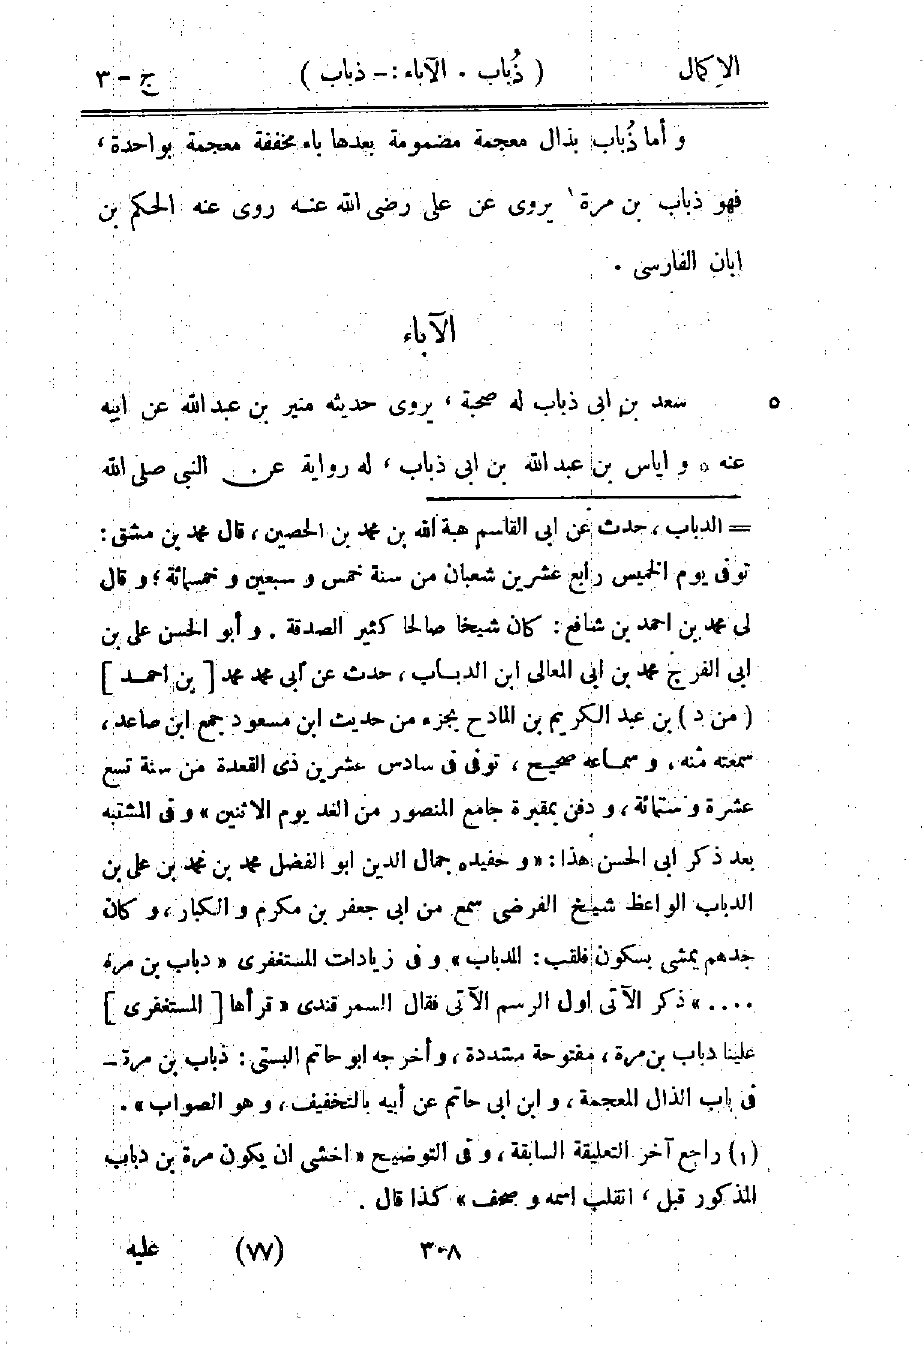 الإكمال ( ذُباب . الآباء :- ذباب ) ج - ٣
و أما ذُباب بذال معجمة مضمومة بعدها باء مخففة معجمة بواحدة ،
فهو ذباب بن مرة ١ يروى عن على رضى الله عنه روى عنه الحكم بن
ابان الفارسى .
الآباء
سعد بن ابى ذباب له صحبة ، يروى حديثه منير بن عبد الله عن ابيه ٥
عنه ٥ و اياس بن عبد الله بن ابى ذباب ، له رواية عن النبى صلى الله
= الدباب ، حدث عن ابى القاسم هبة الله بن محمد بن الحصين ، قال محمد بن مشق :
توفى يوم الخميس رابع عشرين شعبان من سنة خمس و سبعين و خمسمائة ؛ و قال
لى محمد بن احمد بن شافع : كان شيخا صالحا كثير الصدقة . و أبو الحسن على بن
ابى الفرج محمد بن ابى المعالى ابن الدباب ، حدث عن أبى محمد محمد [ بن احمد ]
( من د ) بن عبد الكريم بن المادح بجزء من حديث ابن مسعود جمع ابن صاعد ،
سمعته منه ، و سماعه صحيح ، توفى فى سادس عشرين ذى القعدة من سنة تسع
عشرة و ستمائة ، و دفن بمقبرة جامع المنصور من الغد يوم الاثنين » و فى المشتبه
بعد ذكر ابى الحسن هذا : « و حفيده جمال الدين ابو الفضل محمد بن محمد بن على بن
الدباب الواعظ شيخ الفرضى سمع من ابى جعفر بن مكرم و الكبار ، و كان
جدهم يمشى بسكون فلقب : الدباب » و فى زيادات المستغفرى « دباب بن مرة
.... » ذكر الآتى اول الرسم الآتى فقال السمرقندى « قرأها [ المستغفرى ]
علينا دباب بن مرة ، مفتوحة مشددة ، و أخرجه ابو حاتم البستى : ذباب بن مرة -
فى باب الذال المعجمة ، و ابن ابى حاتم عن أبيه بالتخفيف ، و هو الصواب » .
(١) راجع آخر التعليقة السابقة ، و فى التوضيح « اخشى ان يكون مرة بن دباب
المذكور قبل ، انقلب اسمه و صحف » كذا قال .
٣٠٨ (٧٧) عليه